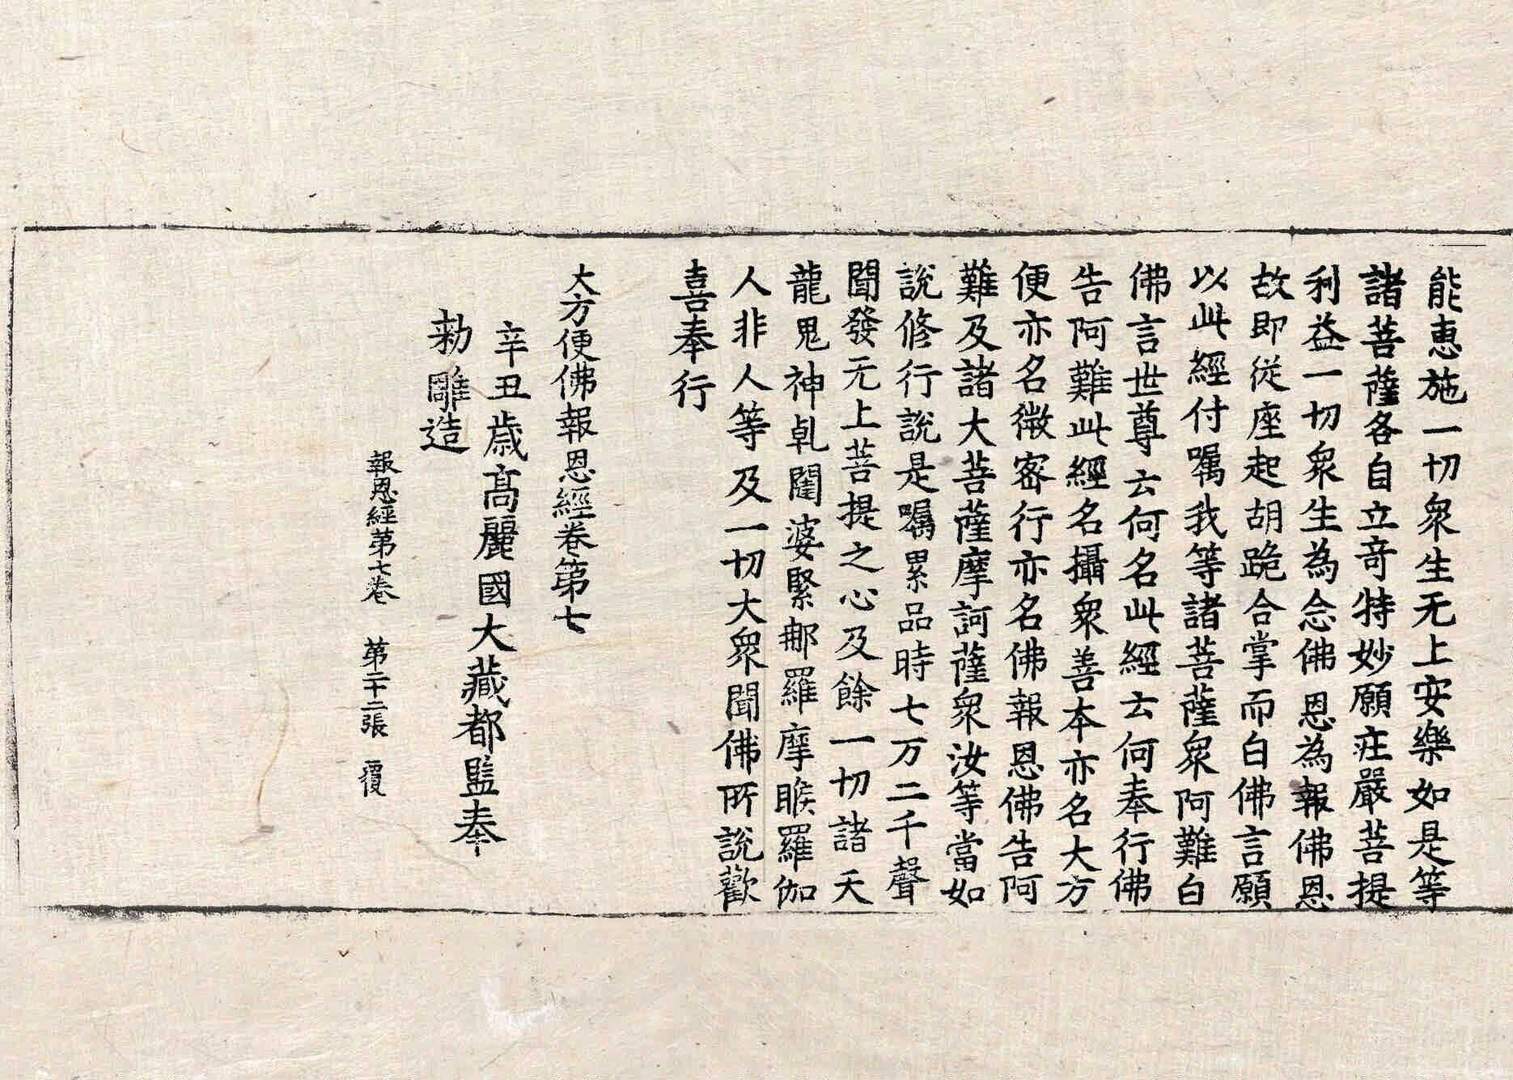 能惠施一切衆生无上安樂如是等
諸菩薩各自立竒特妙願庄嚴菩提
利益一切衆生為念佛恩為報佛恩
故即從座起胡跪合掌而白佛言願
以此經付囑我等諸菩薩衆阿難白
佛言世尊云何名此經云何奉行佛
告阿難此經名攝衆善本亦名大方
便亦名微密行亦名佛報恩佛告阿
難及諸大菩薩摩訶薩衆汝等當如
說修行說是囑累品時七万二千聲
聞發无上菩提之心及餘一切諸天
龍鬼神乹闥婆緊那羅摩睺羅伽
人非人等及一切大衆聞佛所說歡
喜奉行
大方便佛報恩經卷第七
辛丑歲高麗國大藏都監奉
勑雕造
報恩經第七卷 第二十二張 覆